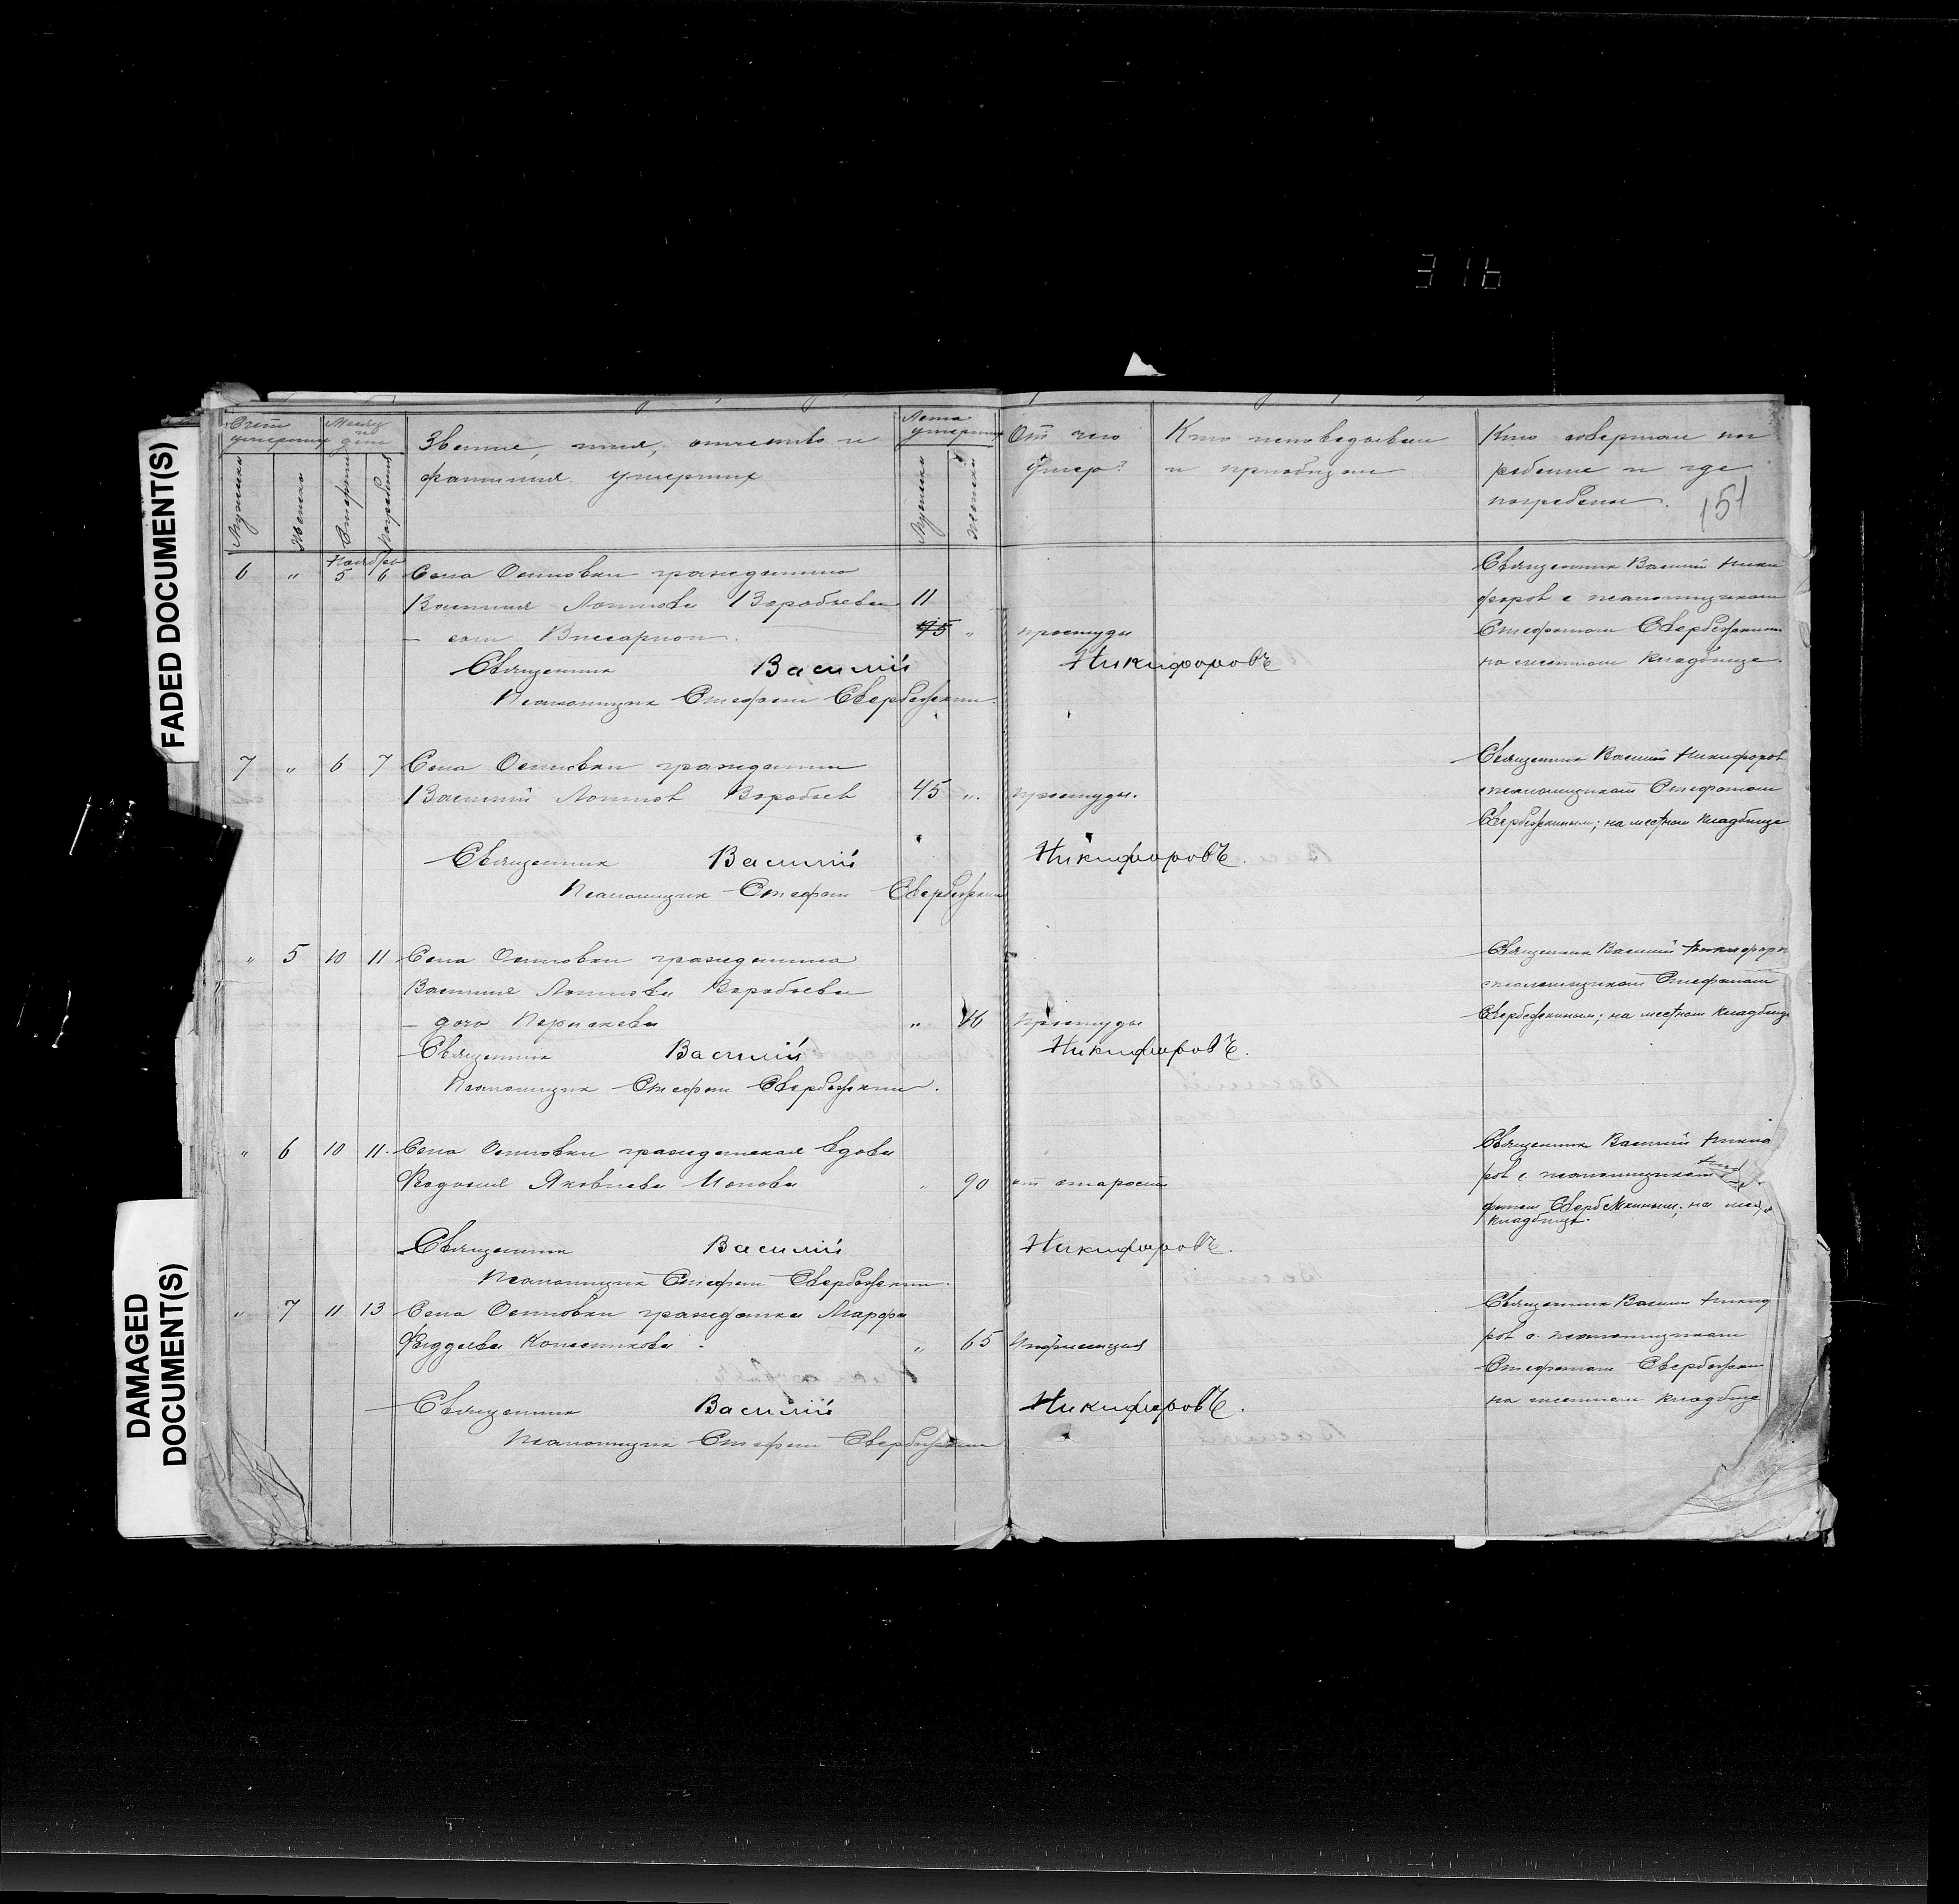 316
FADED DOCUMENT(S)
DAMAGED
DOCUMENT(S)
Счет умерших
Месяц и день
Звание, имя, отчество и
фамилия умерших
Лета умерших
От чего
умер?
Кто исповедывал
и приобщал
Кто совершал по
гребение и где
погребены.
151
Мужска
Женска
Смерти
Погребения
Мужска
Женска
Ноября
6 " 5 6 Села Осиновки гражданина
Василия Логинова Воробьева 11
— сын Виссарион. 45 " простуды
Священник Василий Никифоровъ
Псаломщик Стефан Свербежкин.
Священник Василий Ники
форов с псаломщиком
Стефаном Свербежкиным
на местном кладбище.
7 " 6 7 Села Осиновки гражданин
Василий Логинов Воробьев 45 " простуды.
Священник Василий Никифоровъ.
Псаломщик Стефан Свербежкин
Священник Василий Никифоров
с псаломщиком Стефаном
Свербежкиным; на местном кладбище
" 5 10 11 Села Осиновки гражданина
Василия Логинова Воробьева
— дочь Параскева " 16 простуды
Священник Василий Никифоровъ.
Псаломщик Стефан Свербежкин.
Священник Василий Никифоров
с псаломщиком Стефаном
Свербежкиным; на местном кладбище
" 6 10 11. Села Осиновки гражданская вдова
Яковлева Попова " 90 от старости
Священник Василий Никифоровъ.
Псаломщик Стефан Свербежкин.
Священник Василий Никифо
ров с псаломщиком
фаном Свербежкиным; на
кладбище.
" 7 11 13 Села Осиновки гражданка Марфа
Фаддеева Колесникова. " 65
Священник Василий Никифоровъ.
Псаломщик Стефан Свербежкин
Священник Василий Никифо
ров с псаломщиком
Стефаном Свербежкин
на местном кладбище